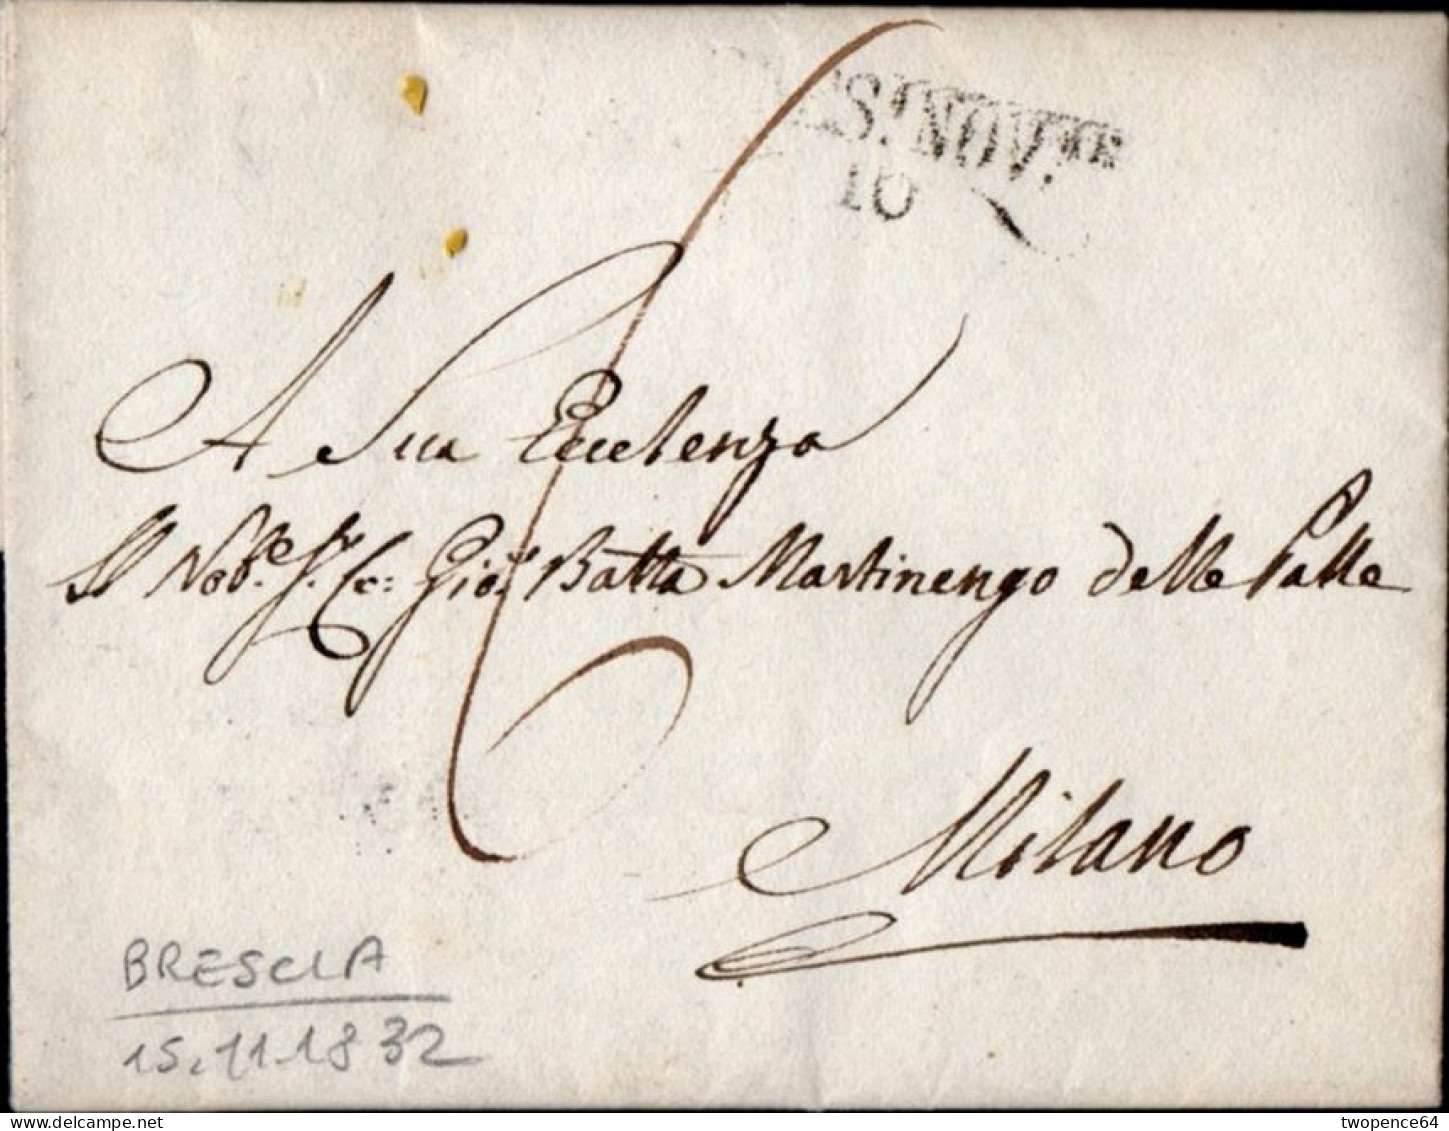 ES.ª NOV.bre
16
A Sua Eccelenza
Il Nob.e S.r Co: Gio. Batta Martinengo delle Palle
Milano
BRESCIA
15.11.1832
twopence64